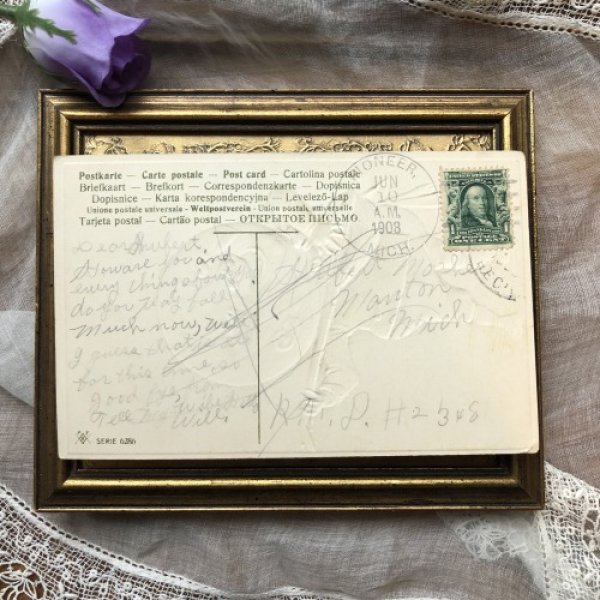 Postkarte – Carte postale – Post card – Cartolina postale
Briefkaart – Brefkort – Correspondenzkarte – Dopisnica
Dopisnice – Karta korespondencyjna – Levelező-Lap
Unione postale universale - Weltpostverein - Union postale universelle
Tarjeta postal – Cartão postal – ОТКРЫТОЕ ПИСЬМО
PIONEER,
JUN
10
A.M.
1908
MICH.
ONE CENT
REC'
Dear Hubert,
How are you and
every thing
do
much now, Will
I guess that is
for this time, so
Good bye from
Tell
Will.
Manton
Mich
R.F.D. # 2
SERIE 6286